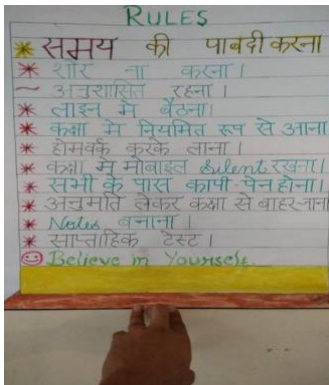 RULES
समय की पाबंदी करना
शोर ना करना।
अनुशासित रहना।
लाइन मे बैठना।
कक्षा मे नियमित रूप से आना
होमवर्क करके लाना।
कक्षा मे मोबाइल Silent रखना।
सभी के पास कापी-पेन होना।
अनुमति लेकर कक्षा से बाहर जाना
Notes बनाना।
साप्ताहिक टेस्ट।
Believe in Yourself.